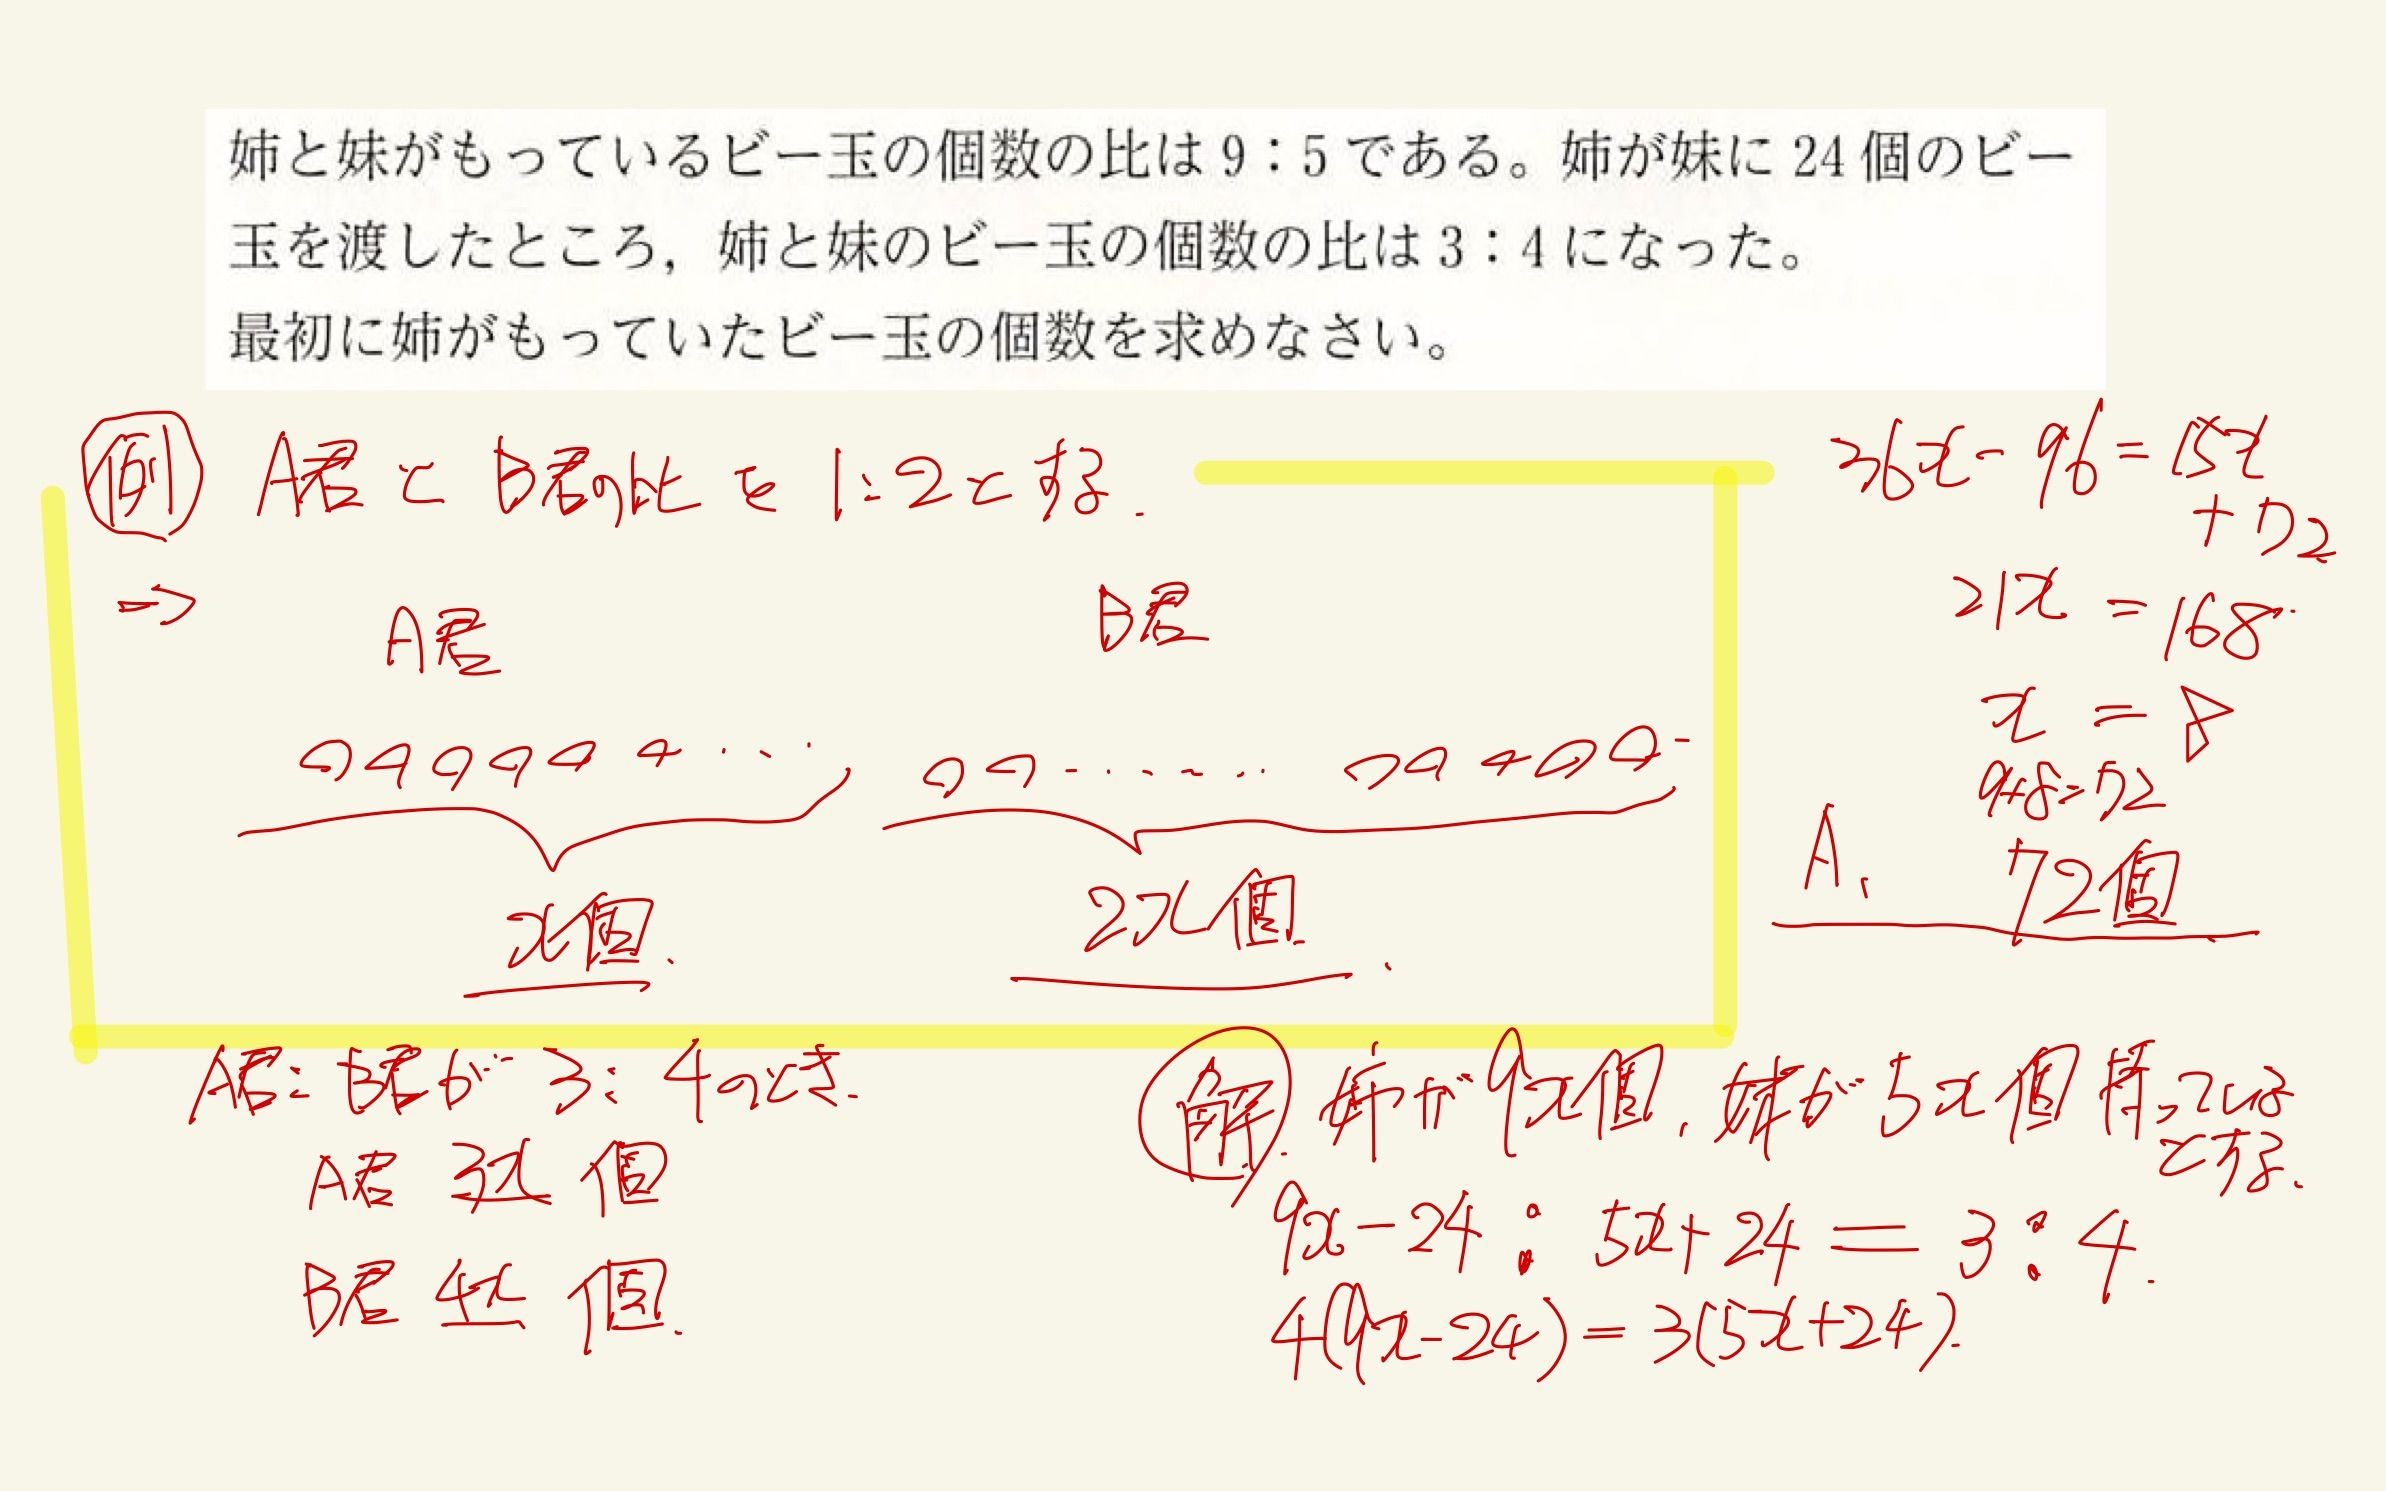 姉と妹がもっているビー玉の個数の比は9：5である。姉が妹に24個のビー
玉を渡したところ，姉と妹のビー玉の個数の比は3：4になった。
最初に姉がもっていたビー玉の個数を求めなさい。
例 A君とB君の比を1:2とする.
→ A君 B君
x個. 2x個.
A君:B君が3:4のとき.
A君 3x個
B君 4x個.
解 姉が9x個.妹が5x個持っている
とする.
9x-24:5x+24=3:4.
4(9x-24)=3(5x+24).
36x-96=15x
+72
21x=168
x=8
9×8=72
A. 72個